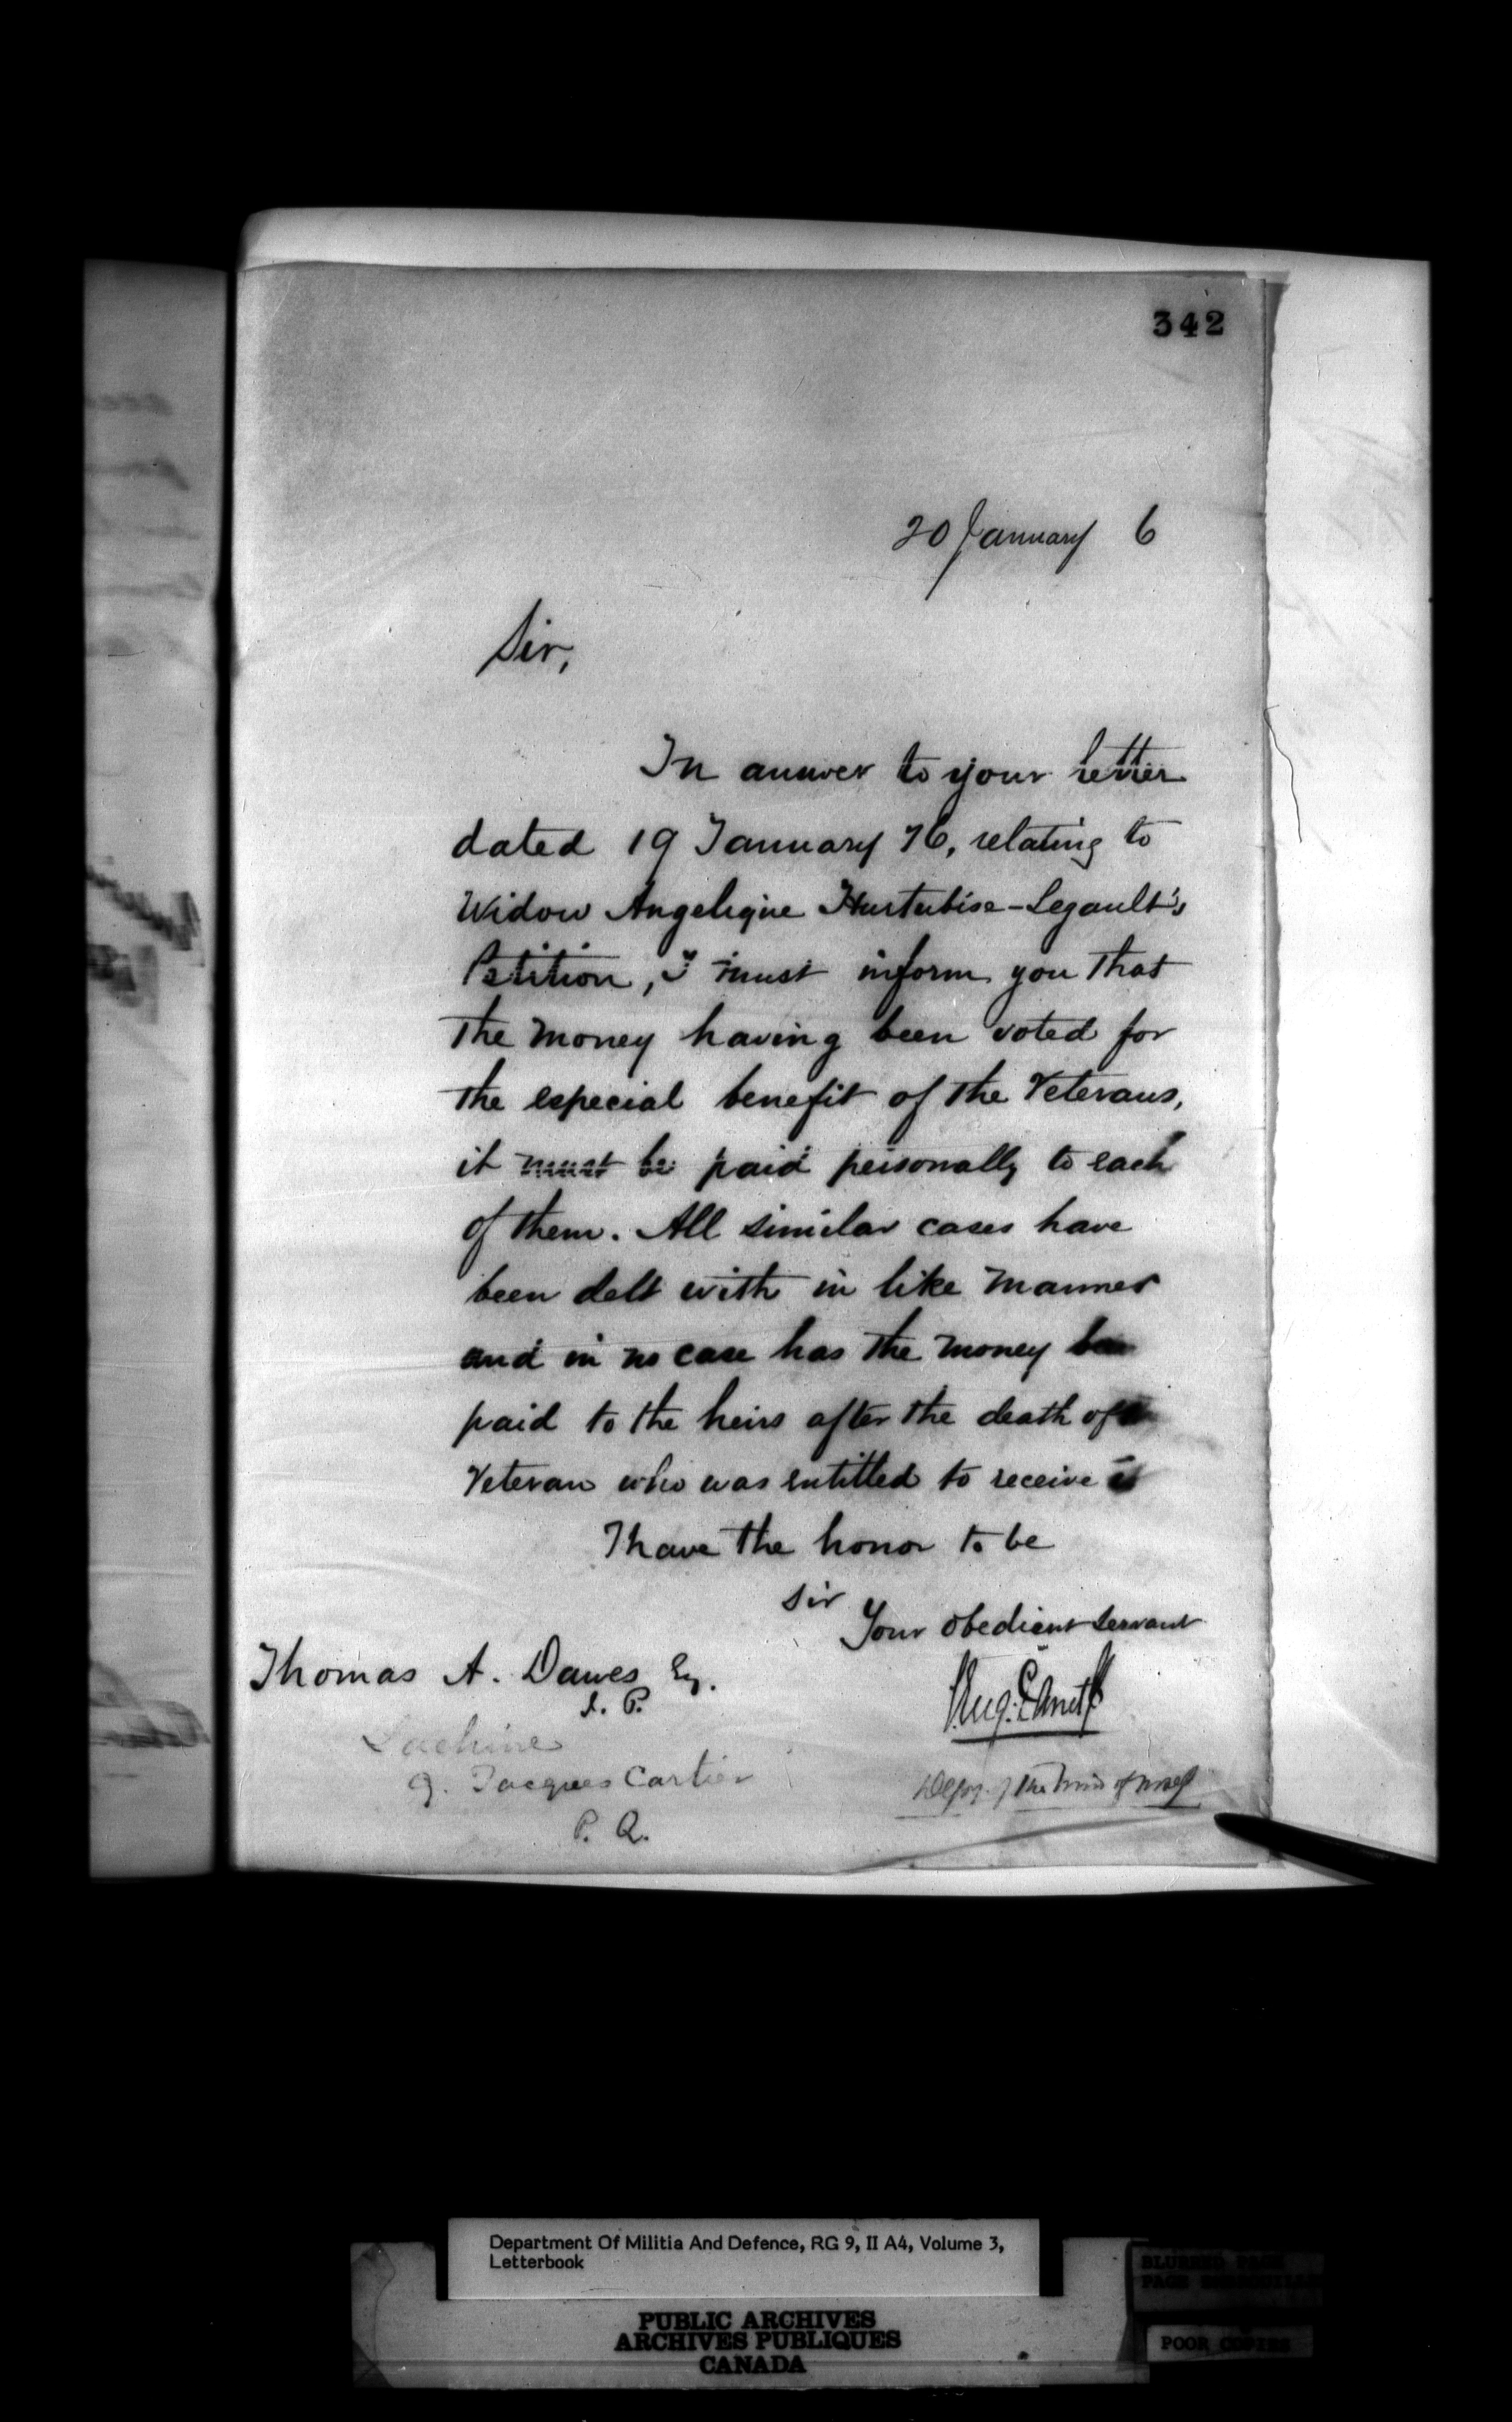 342
20 January 6
Sir,
In answer to your letter
dated 19 January 76, relating to
Widow Angelique Hurtubise-Legault's
Petition, I must inform you that
the money having been voted for
the especial benefit of the Veterans,
it must be paid personally to each
of them. All similar cases have
been delt with in like manner
and in no case has the money
paid to the heirs after the death of
Veteran who was entitled to receive
I have the honor to be
Sir
Your obedient servant
Thomas A. Dawes Esq.
J. P.
Lachine
Jacques Cartier
P. Q.
of the
Department Of Militia And Defence, RG 9, II A4, Volume 3,
Letterbook
PUBLIC ARCHIVES
ARCHIVES PUBLIQUES
CANADA
BLURRED PAGE
PAGE
POOR COPIES